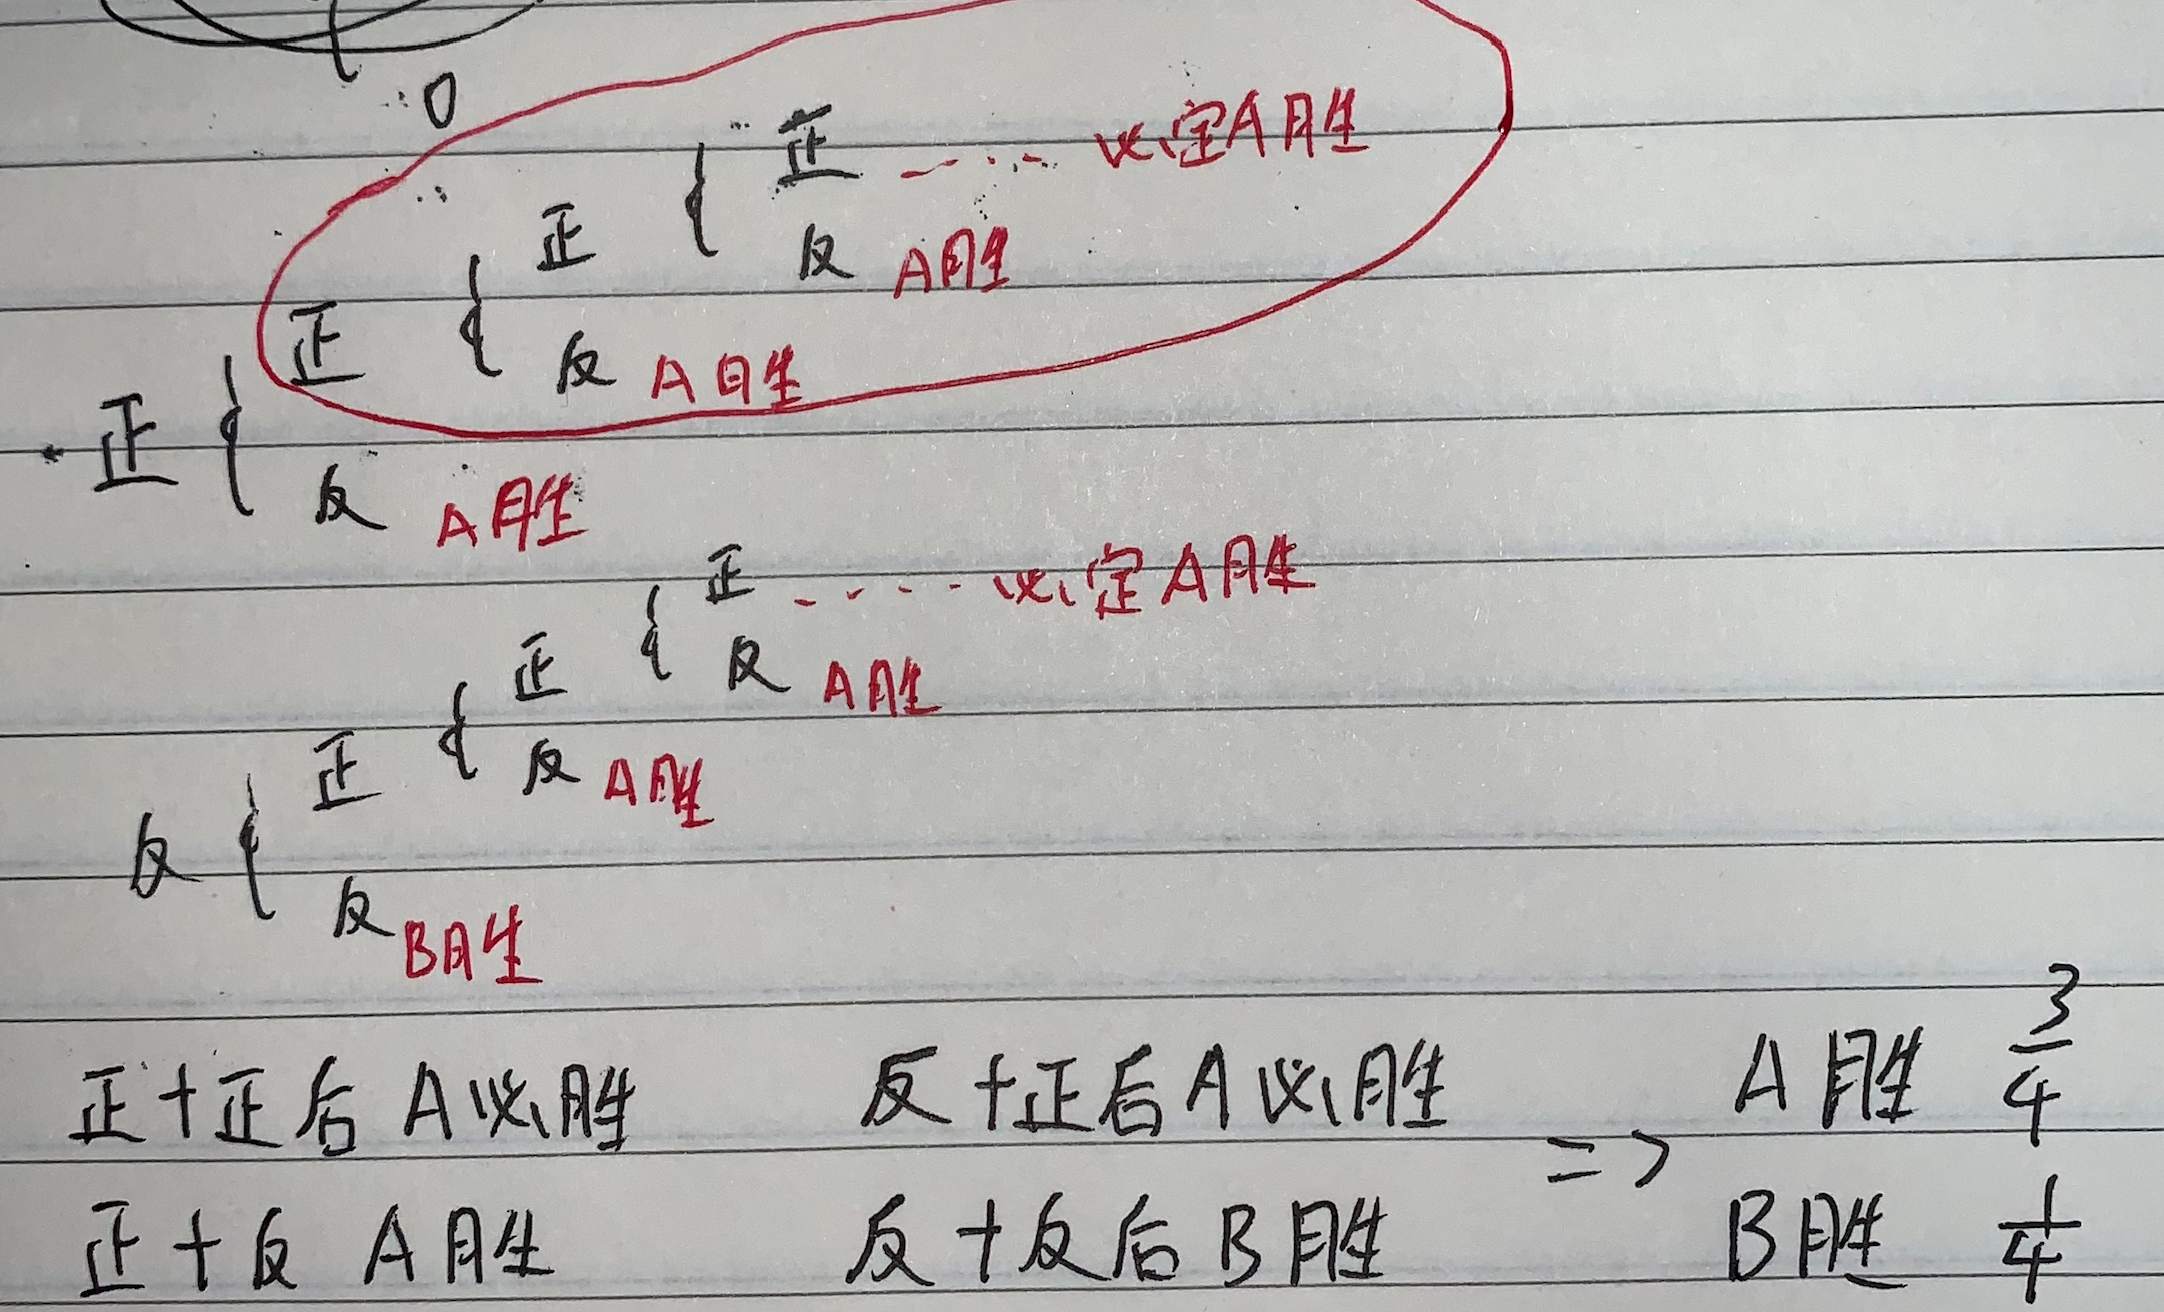 0
正 ---··· 必定A胜
正 {
反 A胜
正 {
反 A胜
正 {
反 A胜
正 ····- 必定A胜
正 {
反 A胜
正 {
反 A胜
反 {
反 B胜
正+正后 A必胜 反+正后A必胜 => A胜 3/4
正+反 A胜 反+反后B胜 B胜 1/4